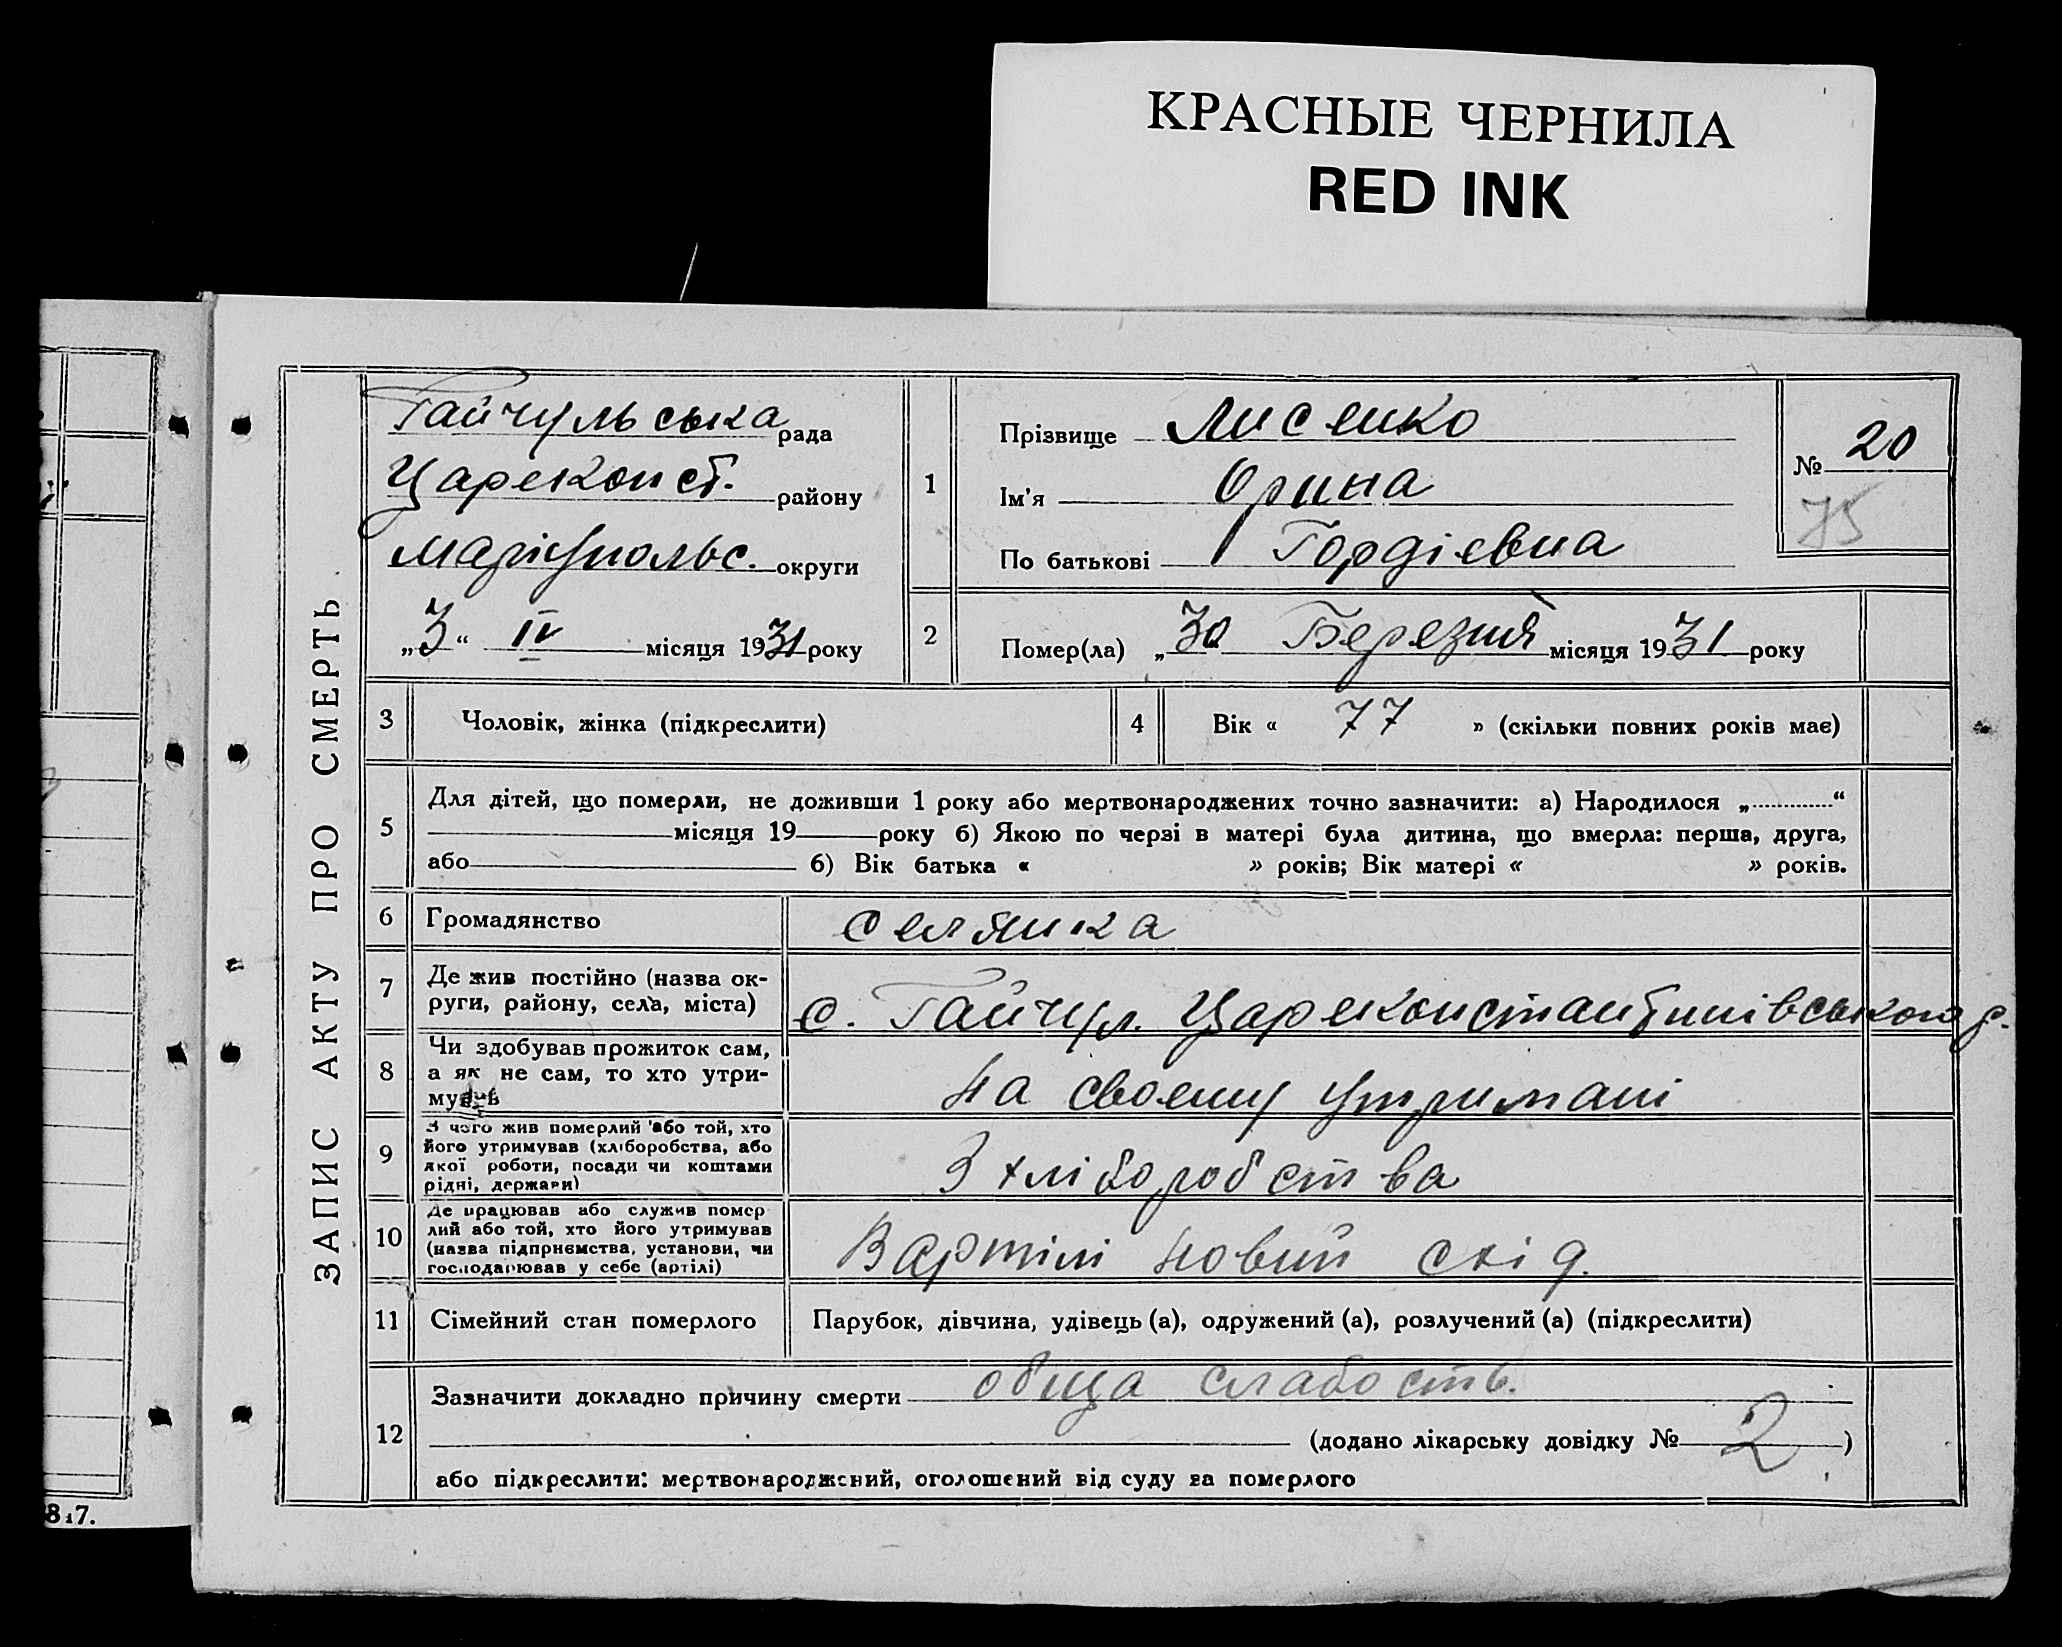 КРАСНЫЕ ЧЕРНИЛА
RED INK
ЗАПИС АКТУ ПРО СМЕРТЬ.
Гайчульська рада
Цареконст. району
Маріупольс. округи
„3“ IV місяця 1931 року
1
Прізвище Лисенко
Ім'я Орина
По батькові Гордієвна
№ 20
75
2
Помер(ла) „30 Березня місяця 1931 року
3 Чоловік, жінка (підкреслити)
4 Вік « 77 » (скільки повних років має)
5 Для дітей, що померли, не доживши 1 року або мертвонароджених точно зазначити: а) Народилося „ “
місяця 19 року б) Якою по черзі в матері була дитина, що вмерла: перша, друга,
або б) Вік батька « » років; Вік матері « » років.
6 Громадянство селянка
7 Де жив постійно (назва ок-
руги, району, села, міста)
с. Гайчул. Цареконстантинівського р.
8 Чи здобував прожиток сам,
а як не сам, то хто утри-
мував
На своему утримані
9 З чого жив померлий або той, хто
його утримував (хліборобства, або
якої роботи, посади чи коштами
рідні, держави)
З хліборобства
10 Де працював або служив помер
лий або той, хто його утримував
(назва підприємства, установи, чи
господарював у себе (артілі)
В артілі Новий схід.
11 Сімейний стан померлого Парубок, дівчина, удівець (а), одружений (а), розлучений (а) (підкреслити)
12 Зазначити докладно причину смерти обща слабость.
(додано лікарську довідку № 2 )
або підкреслити: мертвонароджений, оголошений від суду за померлого